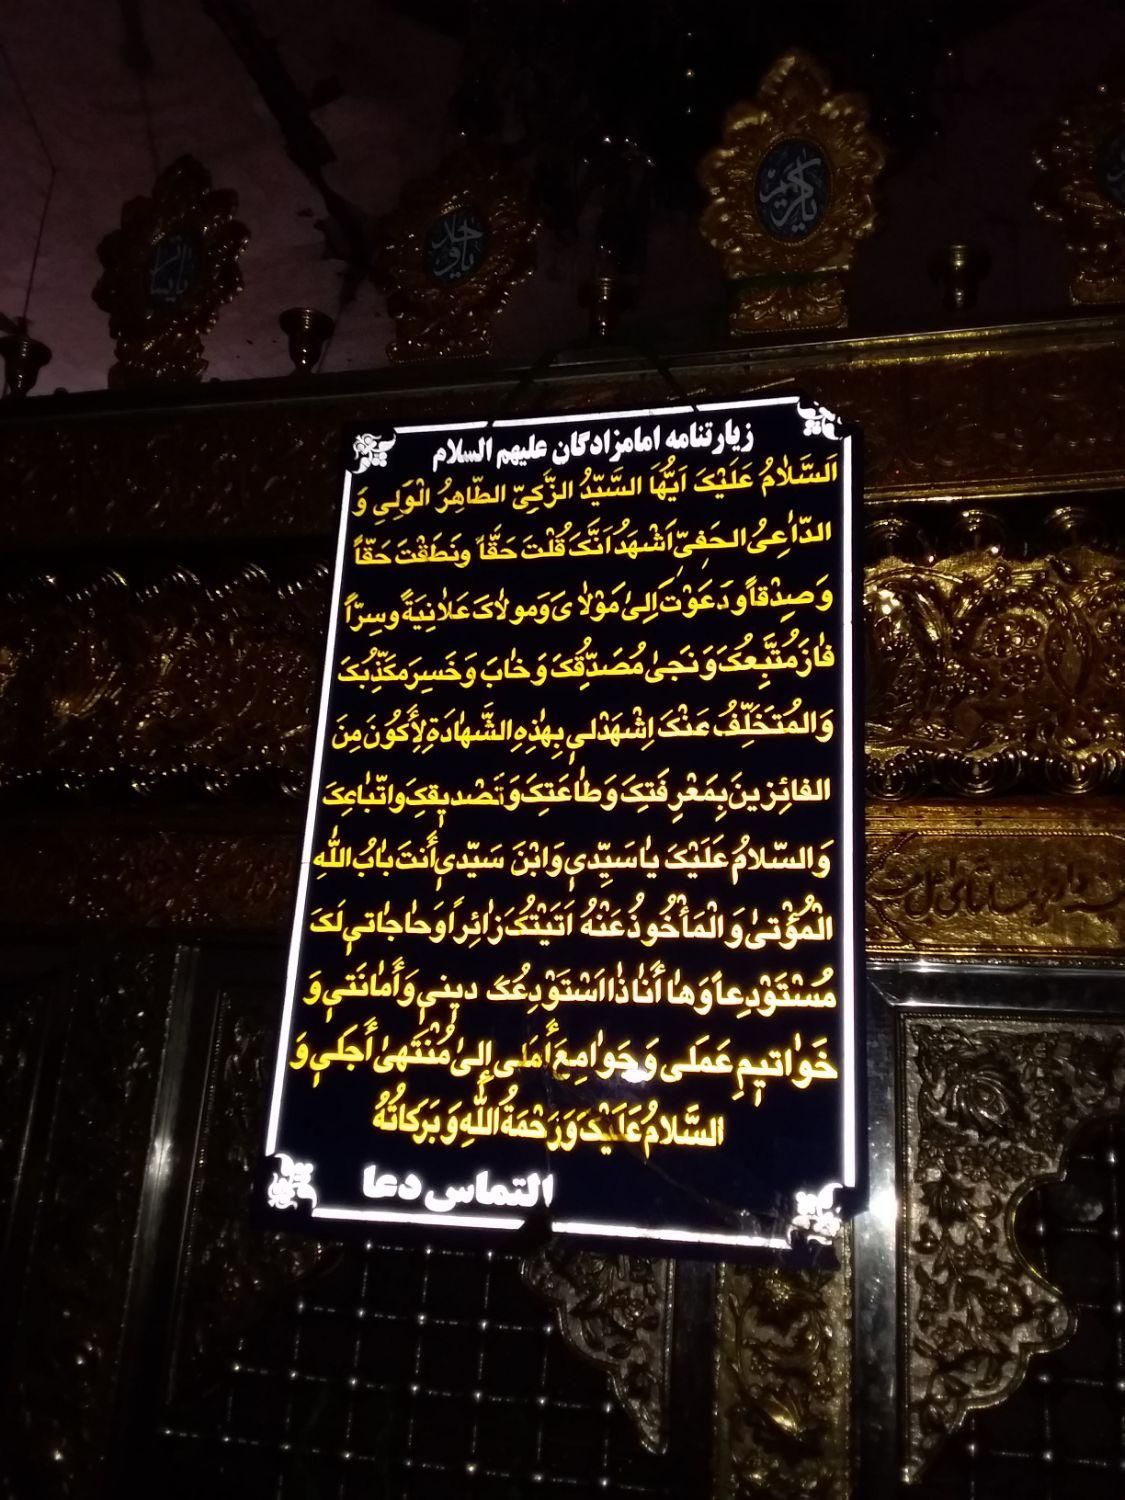 یا کریم
یا واحد
زیارتنامه امامزادگان علیهم السلام
اَلسَّلٰامُ عَلَیْکَ اَیُّهَا السَّیّدُ الزَّکِیّ الطّاهِرُ الْوَلِیِ وَ
الدّاٰعِیُ الحَفِیِّ اَشْهَدُ اَنَّکَ قُلْتَ حَقَّاً ونَطَقْتَ حَقّاً
وَ صِدْقاً و دَعَوْتَ اِلیٰ مَوْلاٰیَ وَ مولاٰکَ عَلاٰنِیَةً وسِرّاً
فٰازَ مُتَّبِعُکَ وَ نَجیٰ مُصَدِّقُکَ وَ خٰابَ وَ خَسِرَ مکَذِّبُکَ
وَ المُتَخَلِّفُ عَنْکَ اِشْهَدْلی بِهٰذِهِ الشَّهٰادَةِ لِأَکُونَ مِنَ
الفائِزینَ بِمَعْرِفَتِکَ وَ طٰاعَتِکَ وَ تَصْدیقِکَ واتّبٰاعِکَ
وَ السّلامُ عَلَیْکَ یٰا سَیِّدیٖ وَابْنَ سَیّدیٖ أَنتَ بٰابُ اللّٰهِ
الْمُؤْتیٰ وَ الْمَأْخُوذُ عَنْهُ اَتَیْتُکَ زٰائِراً وَ حٰاجٰاتیٖ لَکَ
مُسْتَوْدِعاً وَهٰا أَنَٰا ذٰا اَسْتَوْدِعُکَ دیٖنیٖ وَ أَمٰانَتیٖ وَ
خَوٰاتیٖمِ عَمَلی وَ جَوٰامِعَ أَمَلی إِلیٰ مُنْتَهیٰ أَجَلیٖ وَ
السَّلامُ عَلَیْکَ وَ رَحْمَةُ اللّٰهِ وَ بَرَکاتُهُ
التماس دعا